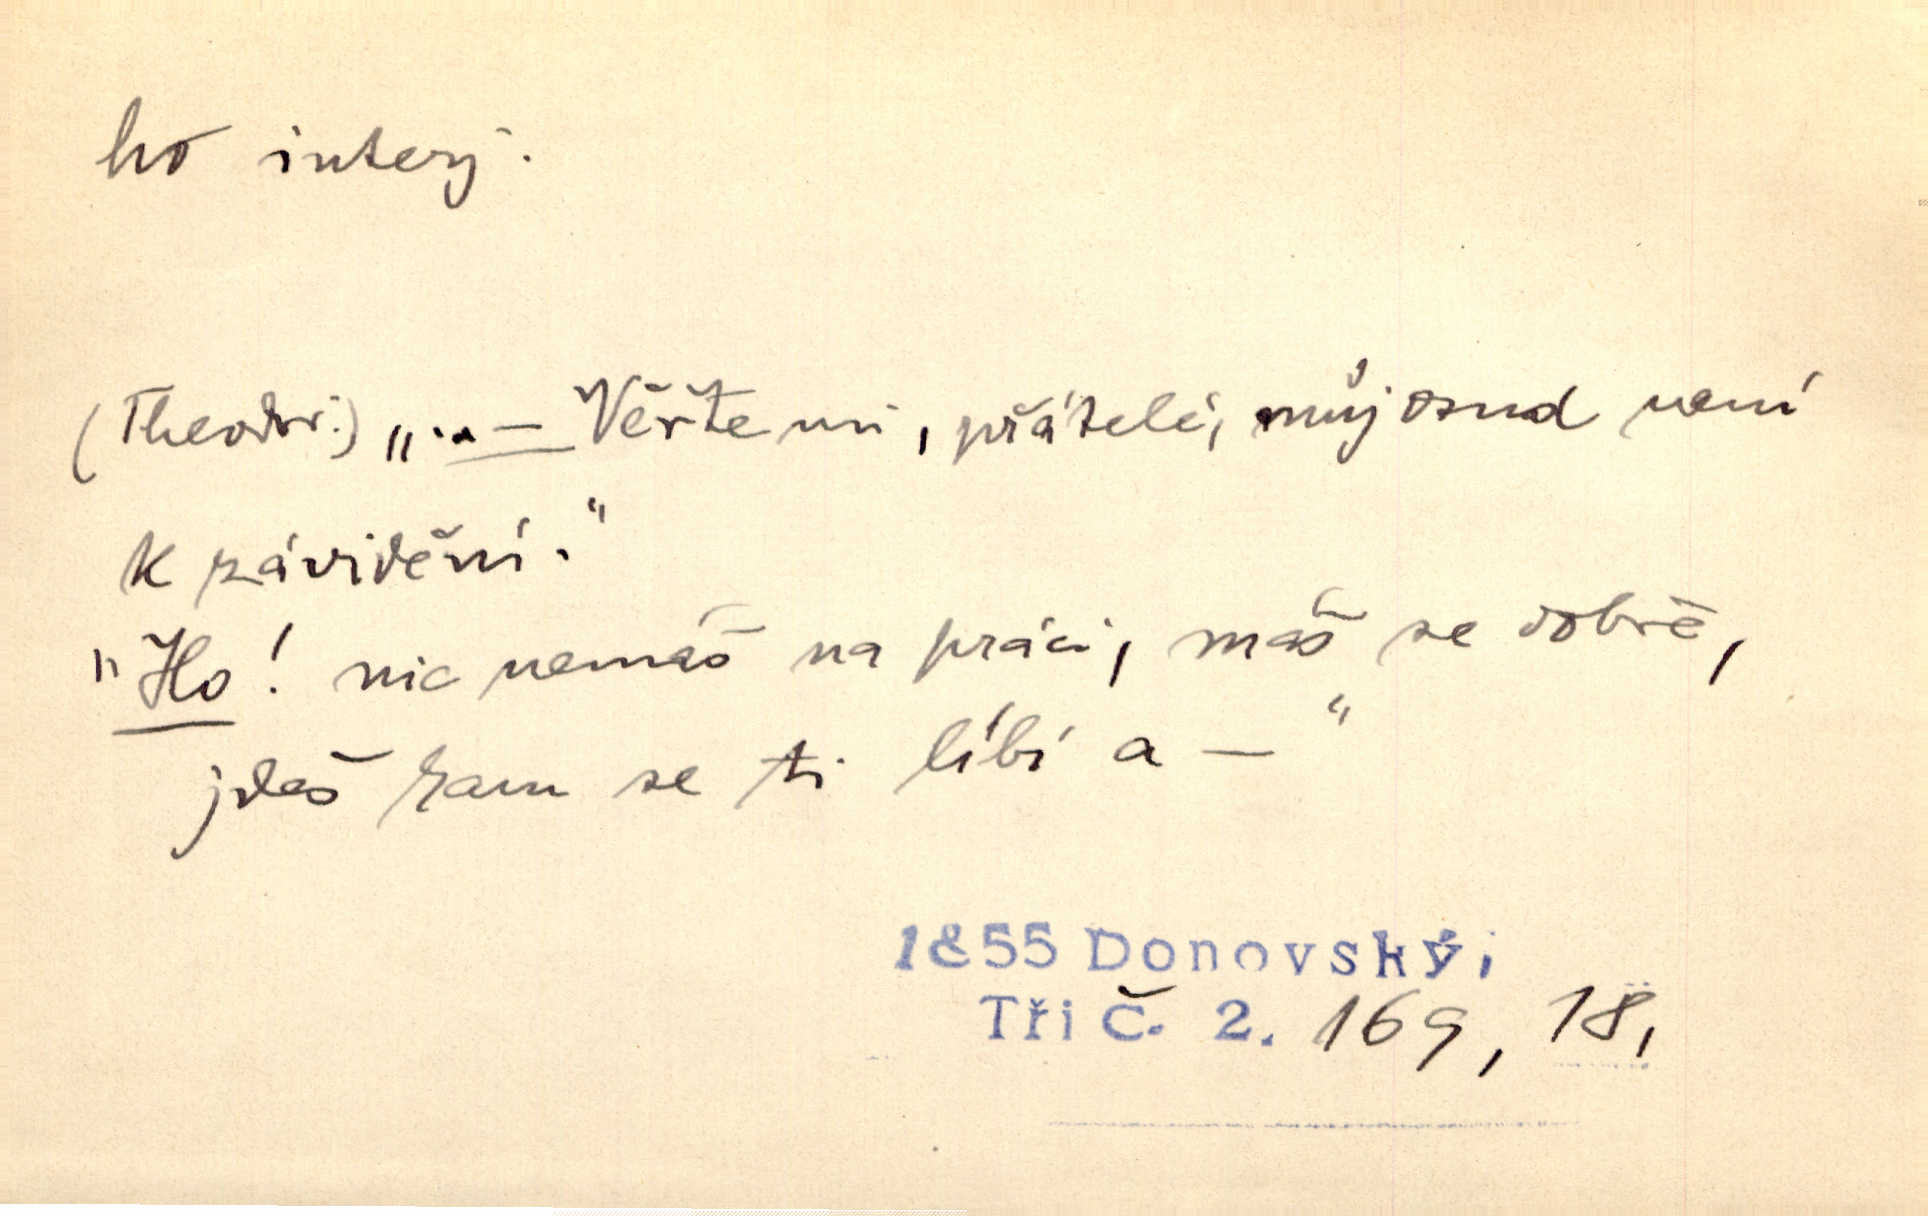 hó interj.
(Theodor:) „.. — Věřte mi, přátelé, můj osud není
k závidění."
"Ho! nic nemáš na práci, máš se dobře,
jdeš kam se ti líbí a — "
1855 Donovský,
Tři Č. 2. 169, 18,